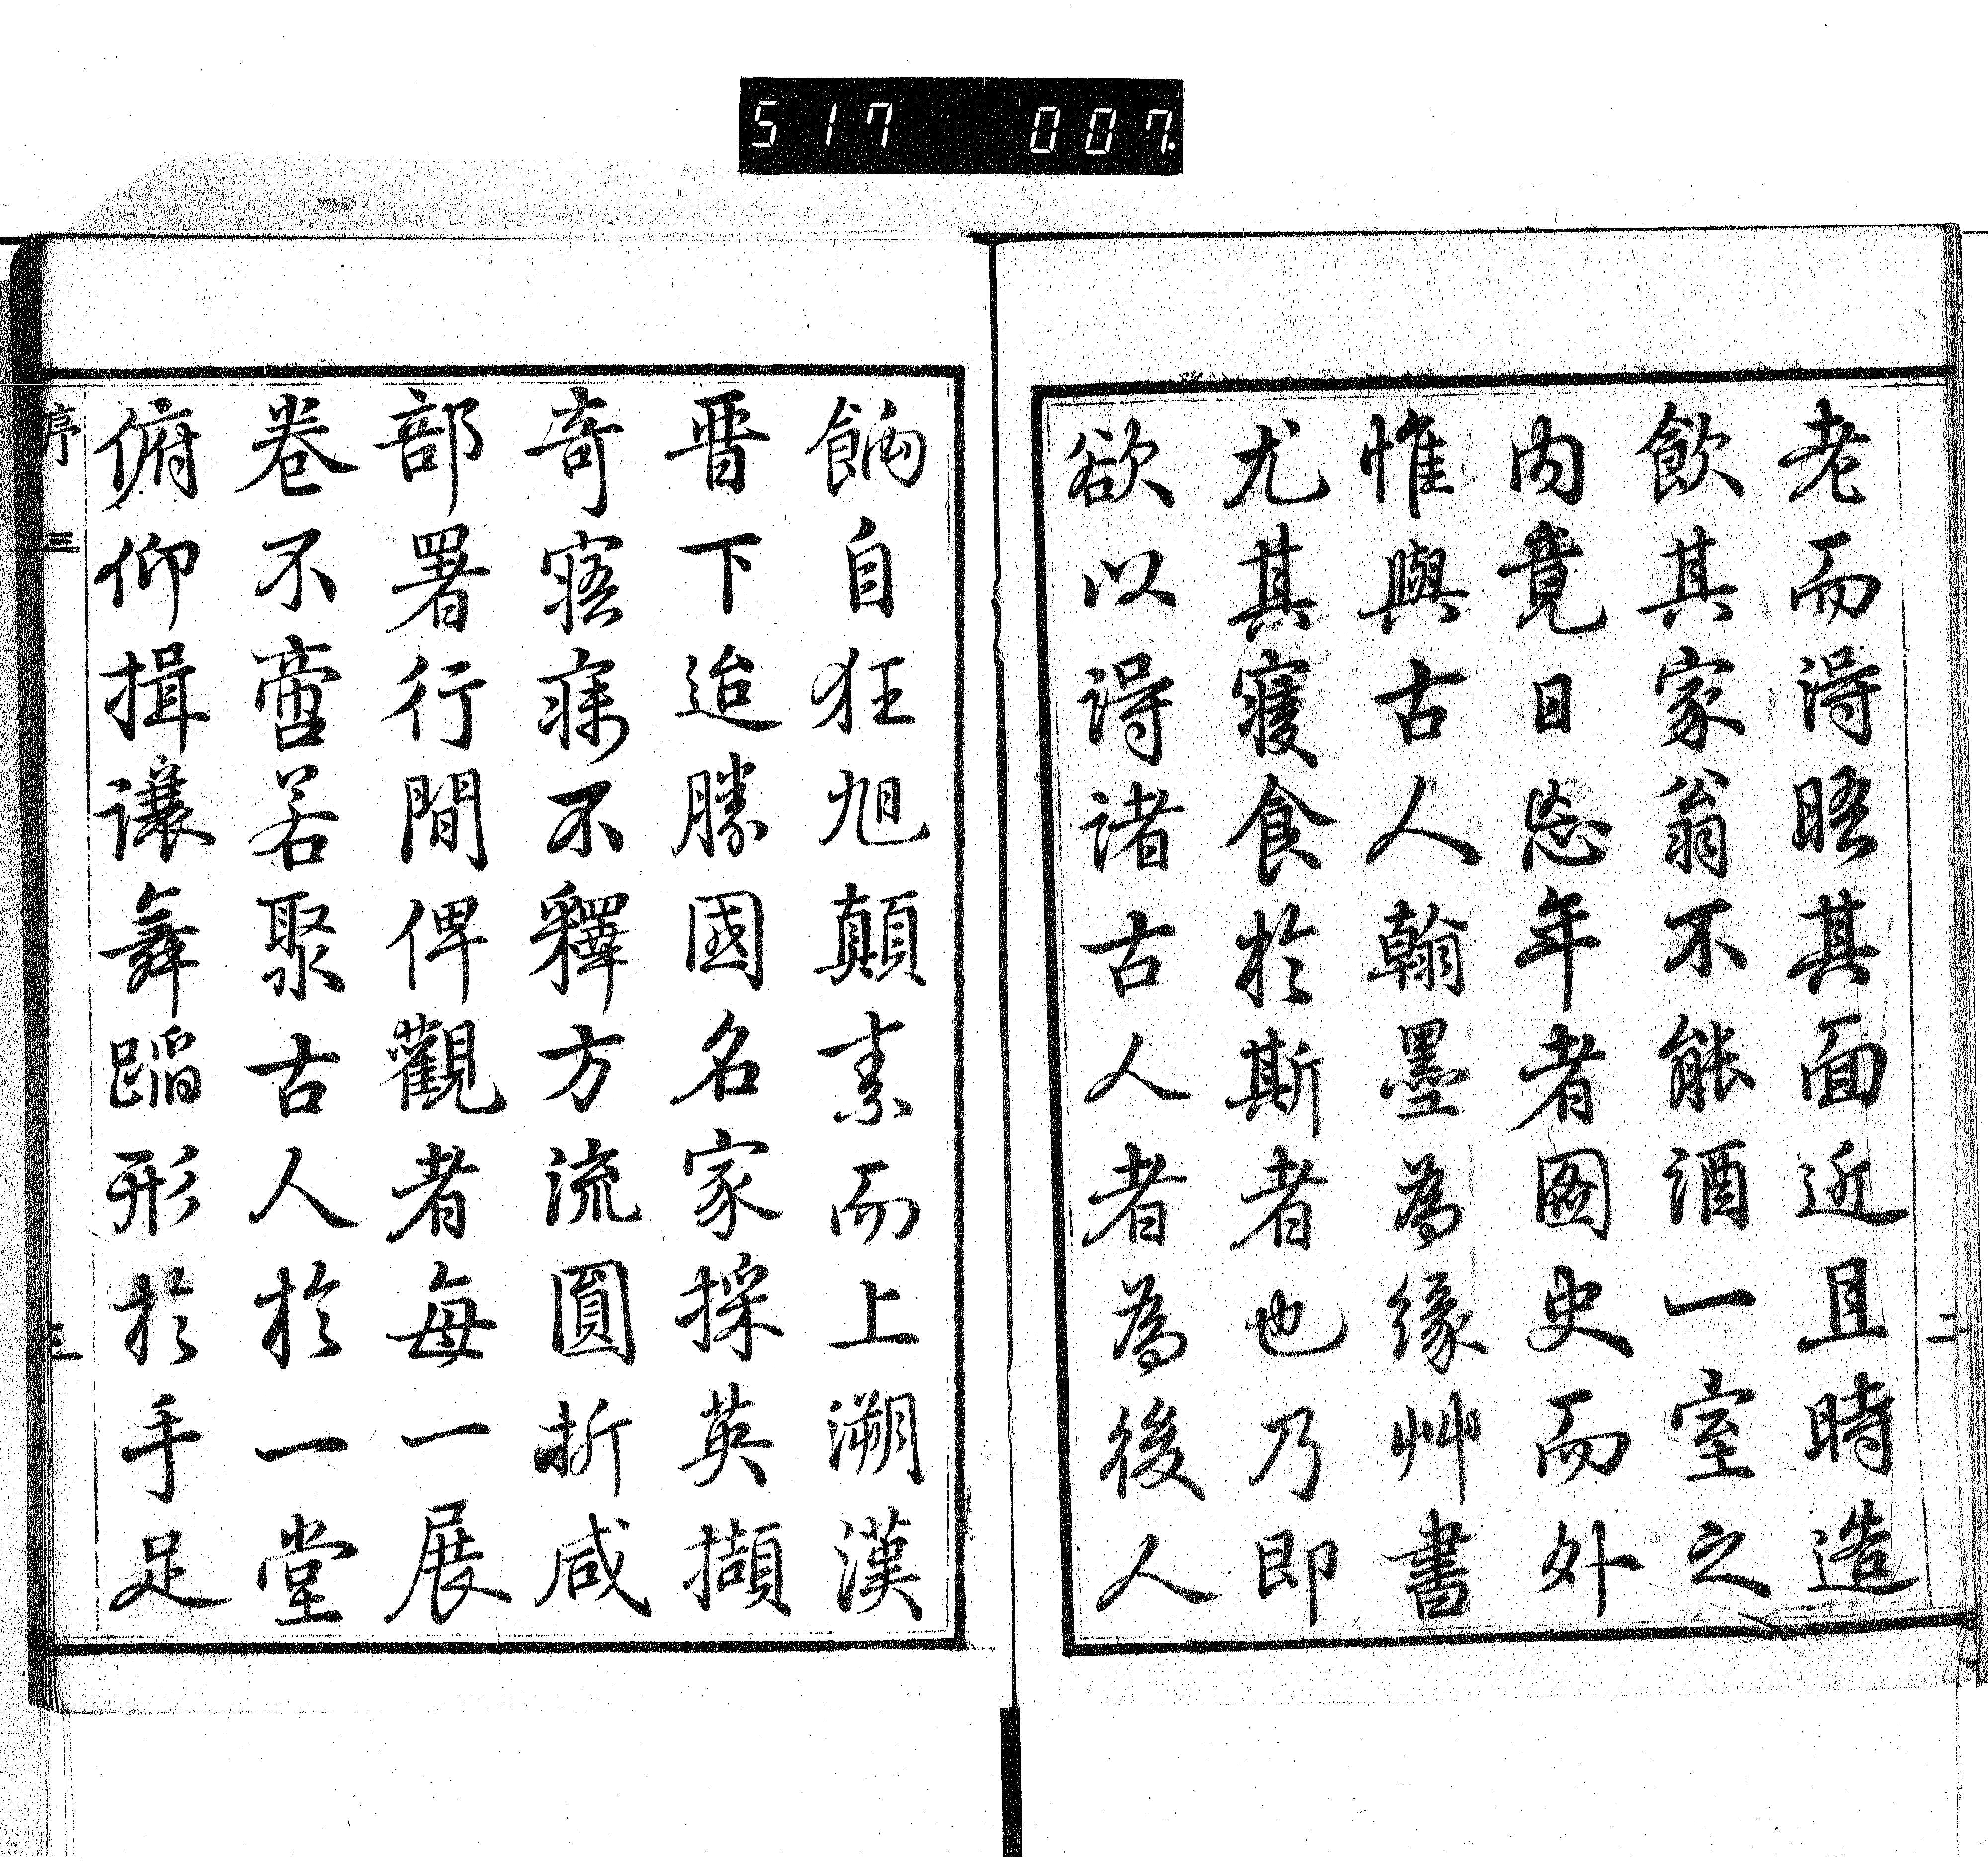 517 007
老而得晤其面近且時造
飲其家翁不能酒一室之
内竟日忘年者圖史而外
惟與古人翰墨為緣艸書
尤其寢食於斯者也乃即
欲以得諸古人者為後人
餉自狂旭顛素而上溯漢
晉下迨勝國名家採英擷
奇寤寐不釋方流圓折咸
部署行間俾觀者每一展
卷不啻若聚古人於一堂
俯仰揖讓舞蹈形於手足
序 三
三
二